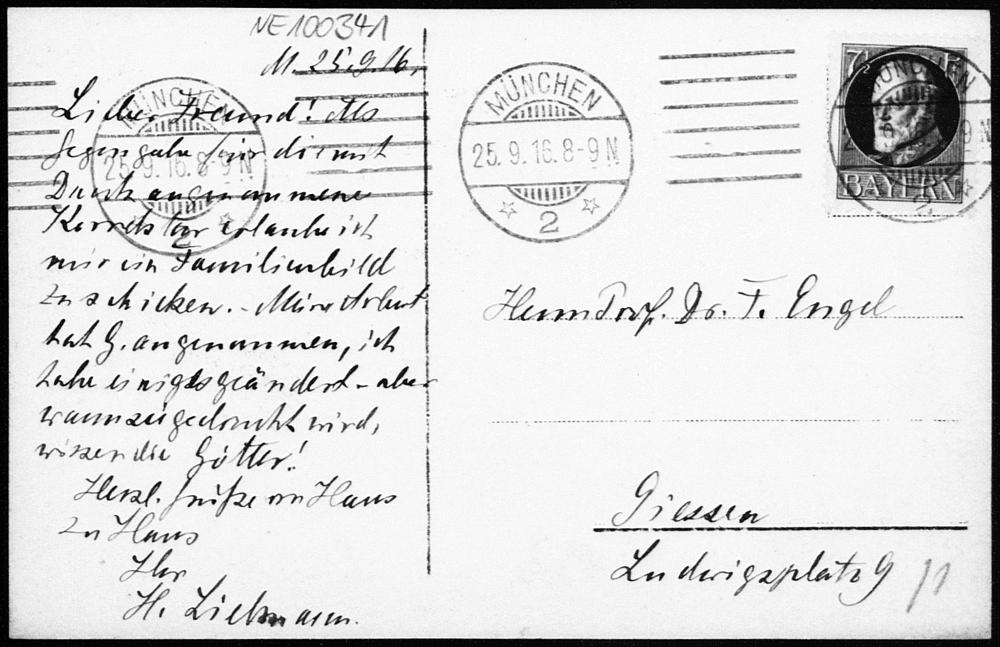 NE100341
M. 25.9.16.
Lieber Freund! Als
Gegengabe für die mit
Dank angenommene
Korrektur erlaube ich
mir ein Familienbild
zu schicken. - Meine Arbeit
hat G. angenommen, ich
habe einiges geändert - aber
wann sie gedruckt wird,
wissen die Götter!
Herzl. Grüße von Haus
zu Haus
Ihr
H. Liebmann.
MÜNCHEN
25.9.16.8-9N
2
MÜNCHEN
25.9.16.8-9N
2
BAYERN
MÜNCHEN
2
Herrn Prof. Dr. F. Engel
Giessen
Ludwigsplatz 9